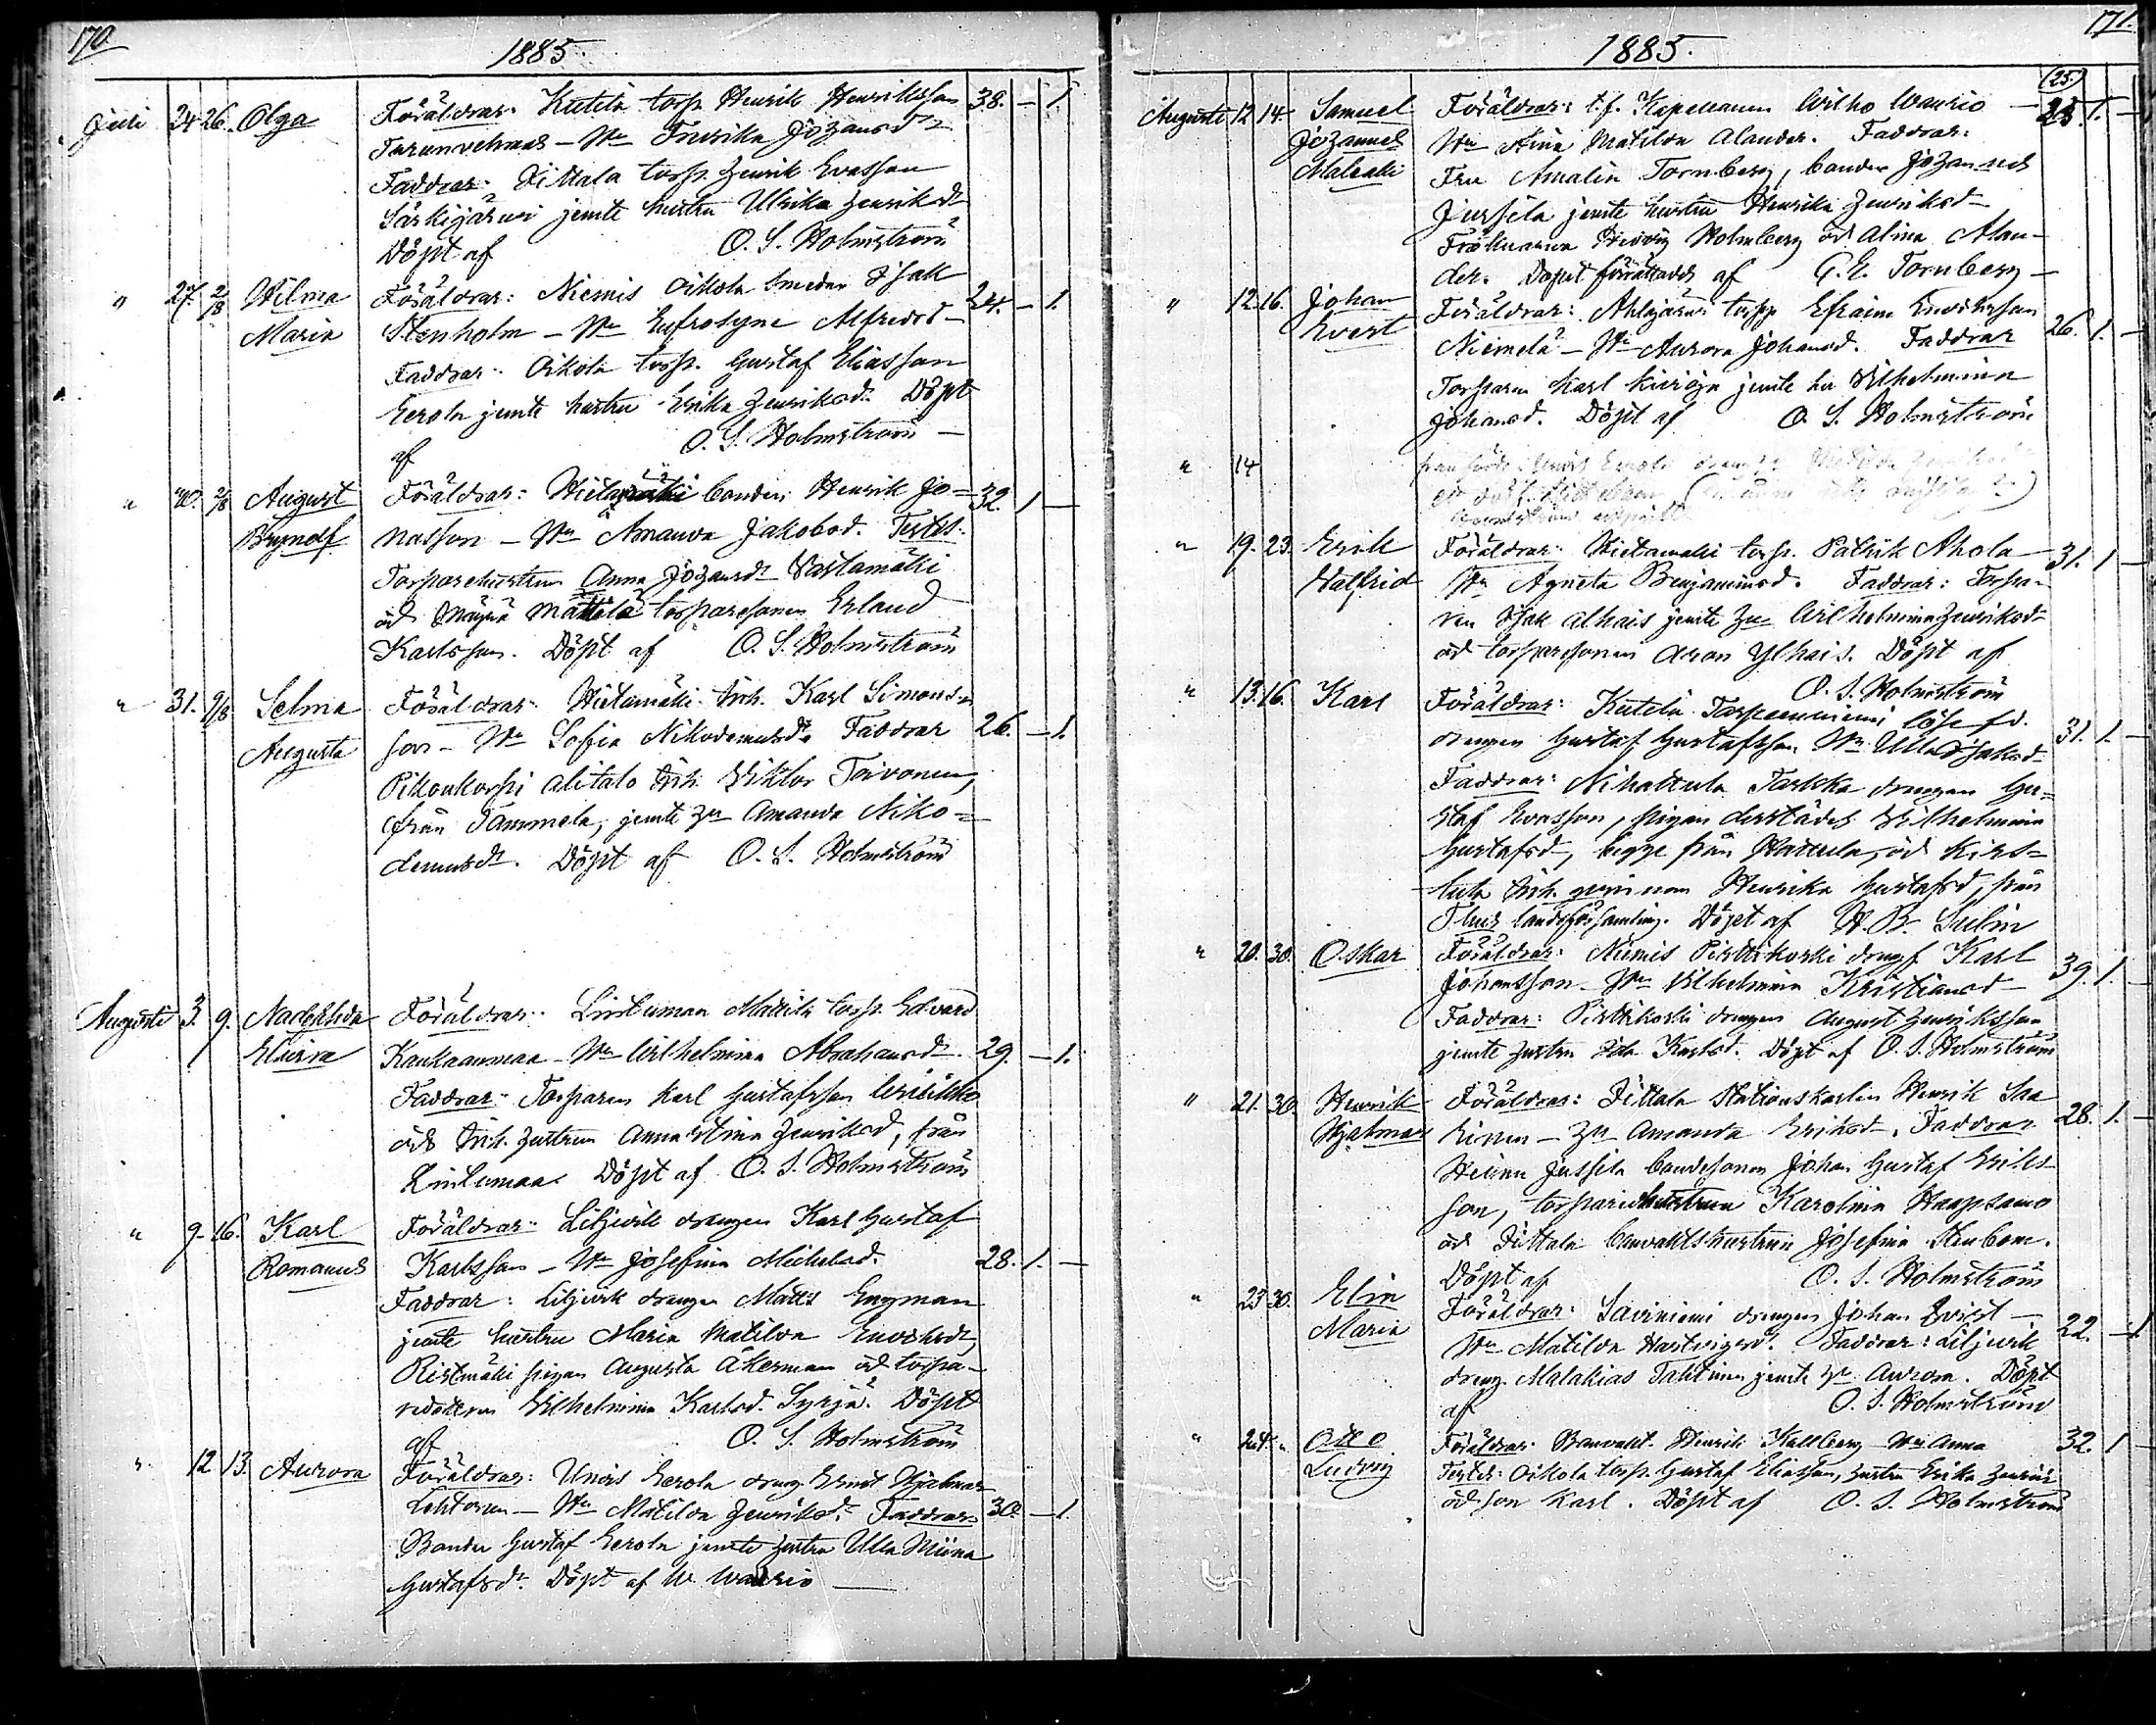 170.
1885.
Juli 24 26. Olga Föräldrar: Kutila torp. Henrik Henriksson 38. - 1.
Turunvehmas - Hu Fredrika Johansdr
Faddrar: Iittala torp. Henrik Evasson
Särkijärwi jemte hustru Ulrika Henriksdr
Döpt af O. S. Holmström
" 27. 2/8 Wilma Föräldrar: Niemis Oikola smeden Isak 24. - 1.
Maria Stenholm - Hu Eufrosyne Alfredsd-
Faddrar: Oikola torp. Gustaf Eliasson
Eerola jemte hustru Erika Henriksd. Döpt
af O. S. Holmström -
" 30. 2/8 August Föräldrar: Hietamäki bonden Henrik Jo= 32. 1 -
Brynolf nasson - Hu Amanda Jakobsd. Testes:
Torparehustrun Anna Johansdr Rastamäki
och Mattila torparesonen Erland
Karlsson. Döpt af O. S. Holmström
" 31. 9/8 Selma Föräldrar: Hietamäki Inh. Karl Simons-
Augusta son - Hu Sofia Nikodemusdr Faddrar 26. - 1.
Alitalo Inh. Viktor Toivonen,
från Tammela, jemte Hu Amanda Niko=
demusdr. Döpt af O. S. Holmström
Augusti 3. 9. Nadeschda Föräldrar: Lintumaa Mattila torp. Edvard
Elviira Kankaanmaa - Hu Wilhelmina Abrahamsdr. 29. - 1.
Faddrar: Torparen Karl Gustafsson
och Inh. hustrun Anna Stina Henriksd, från
Lintumaa. Döpt af O. S. Holmström
" 9. 16. Karl Föräldrar: Liljevik drengen Karl Gustaf
Romanus Karlsson - Hu Josefina Michelsd. 28. 1. -
Faddrar: Liljevik drengen Matts Engman
jemte hustru Maria Matilda Enochsdr,
Ristmäki pigan Augusta Åkerman och torpa-
redottern Wilhelmina Karlsd. Syrjä. Döpt
af O. S. Holmström
" 12. 13. Aurora Föräldrar: Unois Eerola dreng Ernst Hjalmar
Lehtonen - Hu Matilda Henriksdr. Faddrar 30. - 1.
Bonden Gustaf Eerola jemte hustru Ulla Miina
Gustafsdr. Döpt af W. Waurio
171.
1885.
(25.)
Augusti 12 14. Samuel Föräldrar: t.f. Kapellanen Wilho Waurio - 25. 1. -
Johannes Hu Aina Matilda Alander. Faddrar:
Malaki Fru Amalia Tornberg, bonden Johannes
Jussila jemte hustru Henrika Henriksd-
Fröknarna Hedvig Holmberg och Alina Alan-
der. Dopet förrättades af G. E. Tornberg -
" 12. 16. Johan Föräldrar: Ahlajärvi torp. Efraim Enochsson
Evert Niemelä - Hu Aurora Johansd. Faddrar 26. 1. -
Torparen Karl Kivioja jemte hu Wilhelmina
Johansd. Döpt af O. S. Holmström
" 14
" 19. 23. Erik Föräldrar: Hietamäki torp. Patrik Ahola- 31. 1 -
Walfrid Hu Agneta Benjaminsd. Faddrar: Torpa-
ren Isak Alhais jemte Hu Wilhelmina Henriksd-
och torparesonen Aron Ylhais. Döpt af
O. S. Holmström
" 13. 16. Karl Föräldrar: Kutila Torpanniemi
drengen Gustaf Gustafsson Hu Ulla Isaksd- 31. 1. -
Faddrar: Nihattula Tarkka drengen Gu=
staf Evasson, pigan derstädes Wilhelmina
Gustafsd, begge från Hattula, och
Inh. qvinnan Henrika Gustafsd, från
landsförsamling. Döpt af H. B. Sulin
" 20. 30. Oskar Föräldrar: Niemis Pirttikoski dreng Karl
Johansson - Hu Wilhelmina Kristiansd 39. 1. -
Faddrar: Pirttikoski drengen August Henriksson
jemte hustru Ida Karlsd. Döpt af O. S. Holmström
" 21. 30. Henrik Föräldrar: Iittala Stationskarlen Henrik Saa
Hjalmar rinen - Hu Amanda Eriksd. Faddrar 28. 1. -
Jussila bondesonen Johan Gustaf Eriks-
son, torparehustrun Karolina Haapsamo
och Iittala banvaktshustrun Josefina Stenbom.
Döpt af O. S. Holmström
" 23 30. Elin Föräldrar: Saviniemi drengen Johan Qvist -
Maria Hu Matilda Hartvigsd. Faddrar: Liljevik 22. - 1.
dreng Malakias Tähtinen jemte Hu Aurora. Döpt
af O. S. Holmström
" 24. " Otto Föräldrar: Banvakt. Henrik Kallberg Hu Anna 32. 1 -
Ludvig Testes: Oikola torp. Gustaf Eliasson, hustru Erika Henriks
och son Karl. Döpt af O. S. Holmström